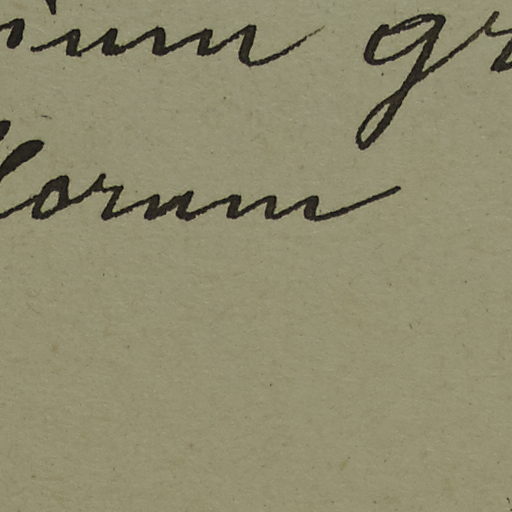 ium gr
lorum